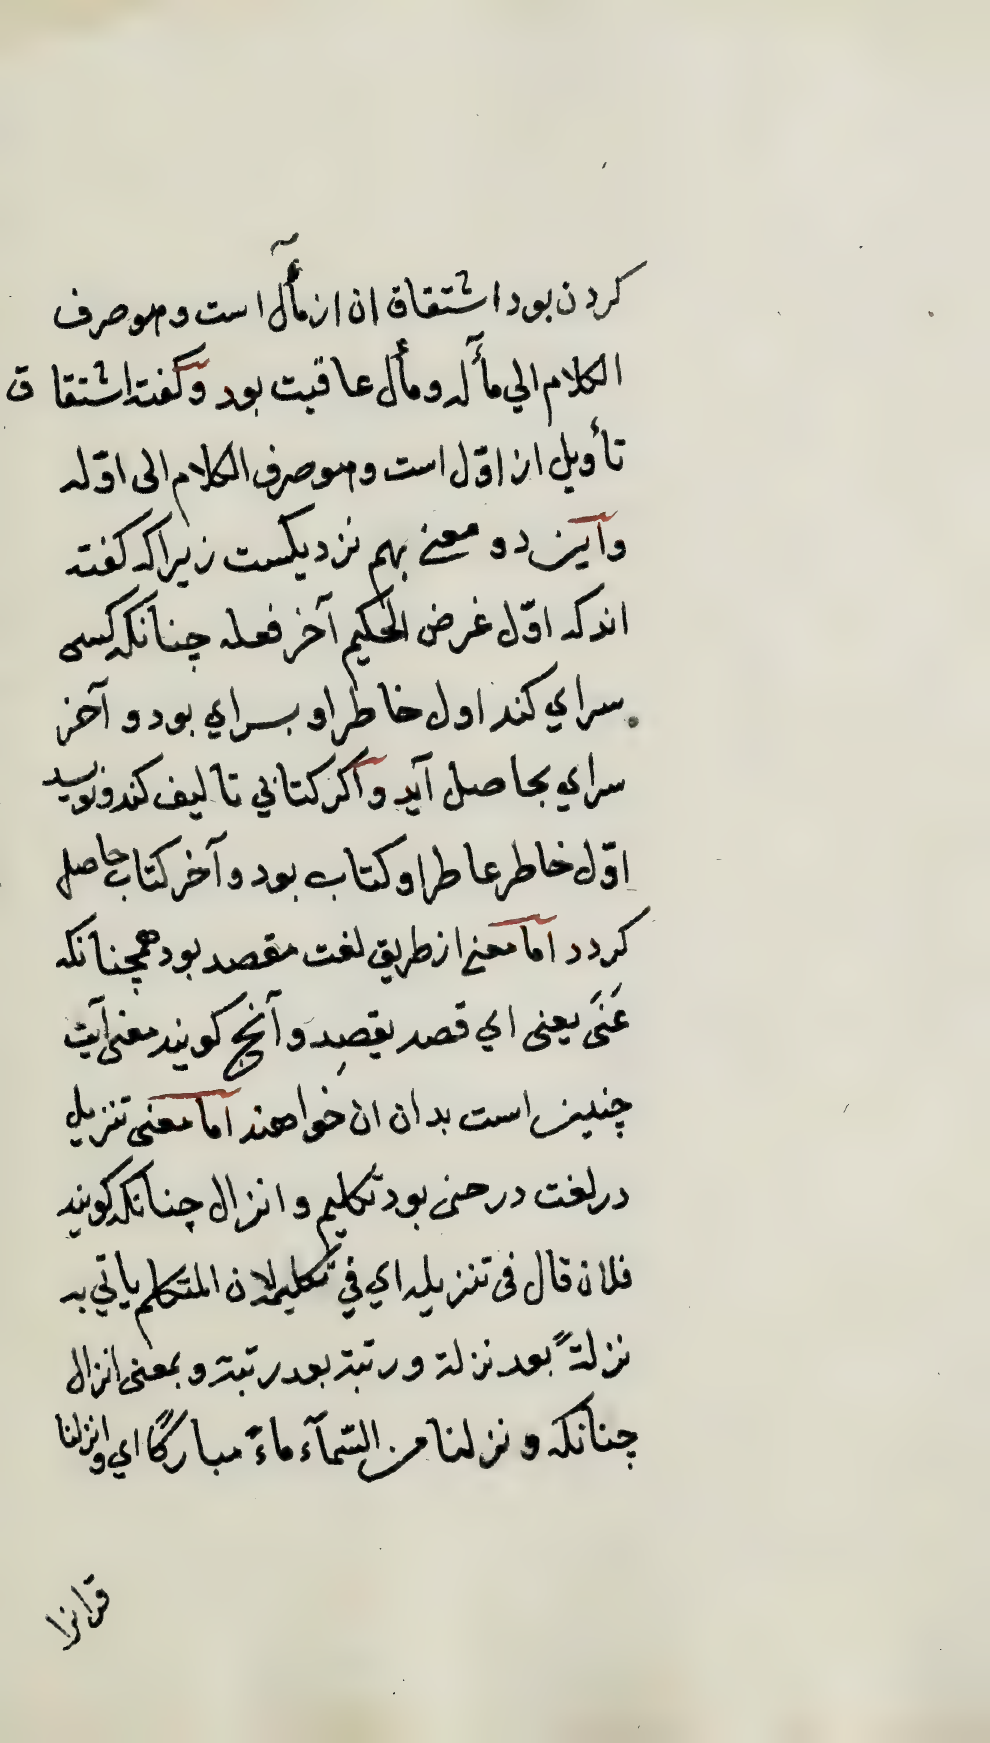 کردن بود اشتقاق ان از مأٓل است وهو صرف
الکلام الي مأٓله ومأٓل عاقبت بود وکفته اشتقاق
تأويل از اوّل است وهو صرف الکلام الی اوّله
وآين دو معنے بهم نزديکست زيراکه کفته
اندکه اوّل غرض الحکيم آخر فعله چنانکه کسی
سراي کند اول خاطر او بسراي بود و آخر
سراي بحاصل آيد وآکر کتابي تاليف کند ونويسد
اوّل خاطر عاطر او کتاب بود و آخر کتاب حاصل
کردد امّا معنے از طريق لغت مقصد بود همچنانکه
عَنَی يعنی اي قصد يقصِد و آنچ کويند معنی آيت
چنين است بدان ان خواهند امّا معنی تنزيل
در لغت در حنی بود تکليم و انزال چنانکه کويند
فلان قال فی تنزيله اي في تکليمه لان المتکلم ياتي به
نزلةً بعد نزلة و رتبة بعد رتبة و بمعنی انزال
چنانکه و نزلنا من السّمآء ماءً مبارکًا اي وانزلنا
قرانرا